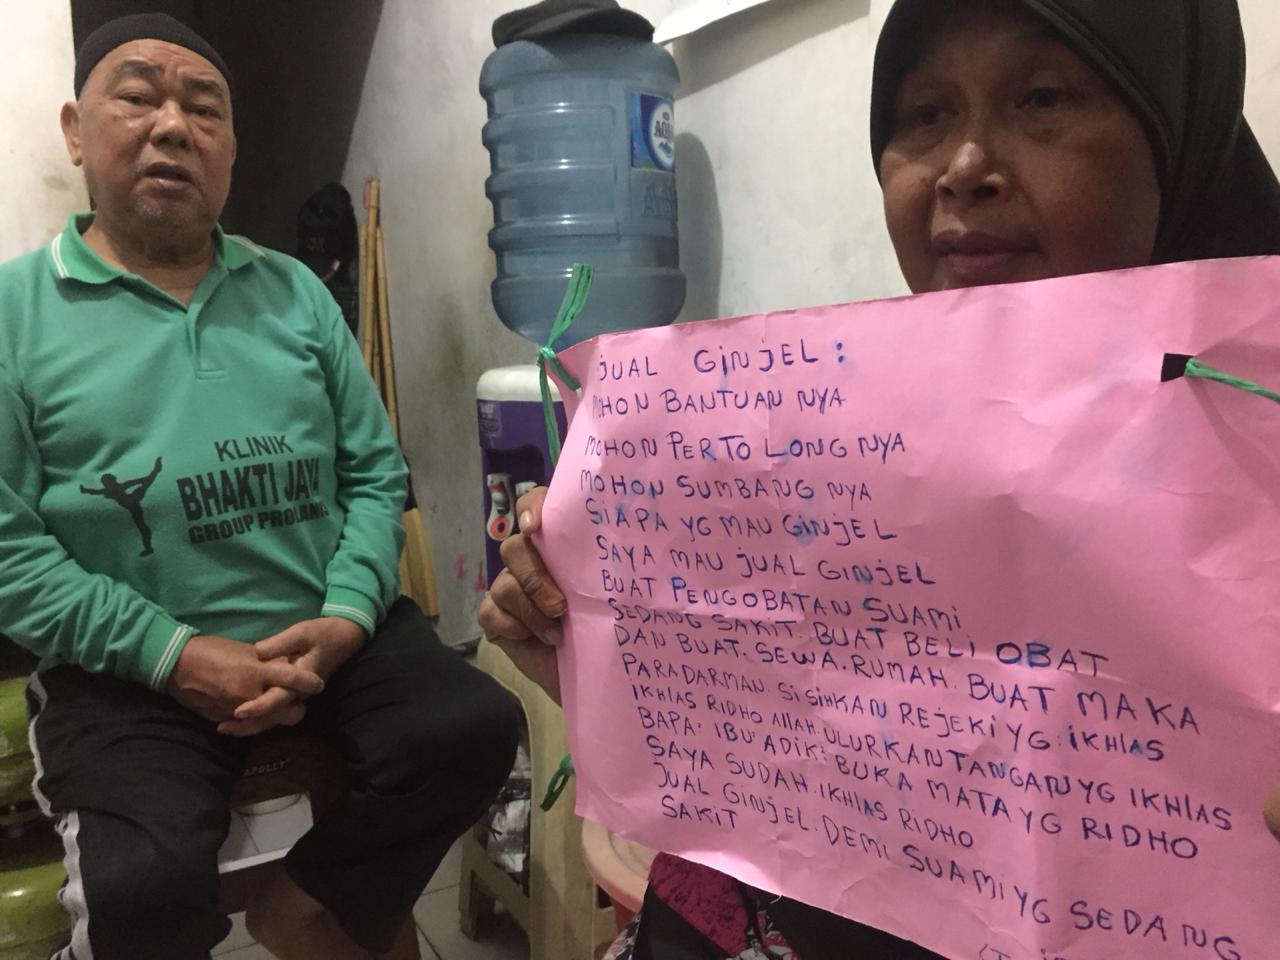 KLINIK
BHAKTI JAYA
GROUP PROLANIS
JUAL GINJEL :
MOHON BANTUAN NYA
MOHON PERTOLONG NYA
MOHON SUMBANG NYA
SIAPA YG MAU GINJEL
SAYA MAU JUAL GINJEL
BUAT PENGOBATAN SUAMI
SEDANG SAKIT. BUAT BELI OBAT
DAN BUAT. SEWA. RUMAH. BUAT MAKA
PARADARMAN. SISIHKAN REJEKI YG. IKHLAS
IKHLAS RIDHO ALLAH. ULURKAN TANGAN YG IKHLAS
BAPA. IBU. ADIK. BUKA MATA YG RIDHO
SAYA SUDAH. IKHLAS RIDHO
JUAL GINJEL. DEMI SUAMI YG SEDANG
SAKIT